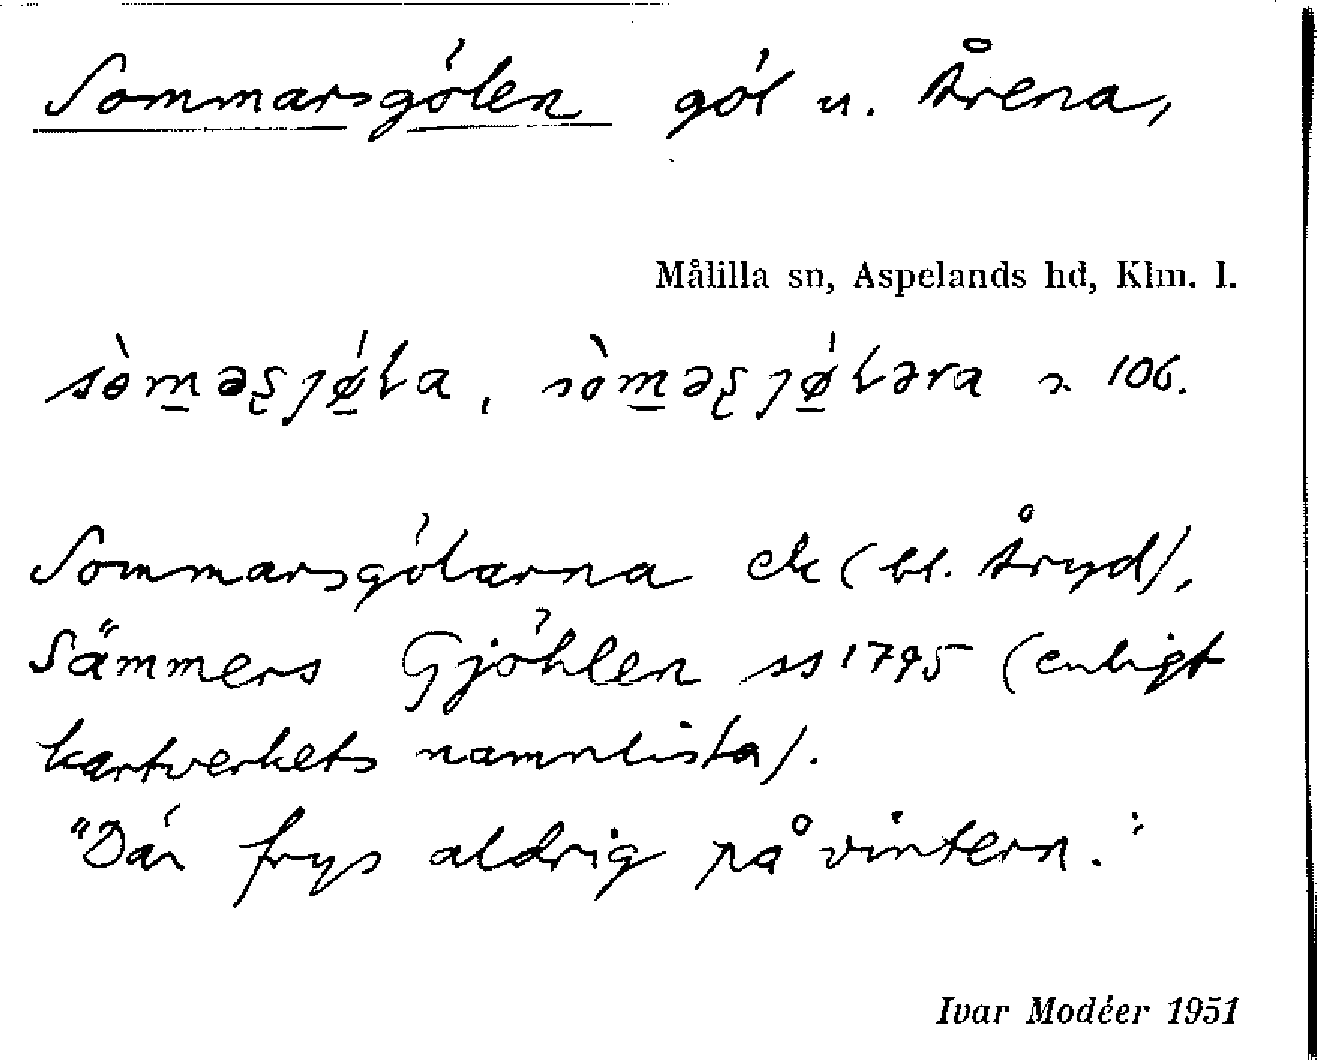 Sommarsgölen göl u. Årena,
Målilla sn, Aspelands hd, Klm. l.
sòm̲əʂjǿ̲ɫa, sòm̲əʂjǿ̲ɫəra 106.
Sommarsgölarna ek (bl. Åryd),
Sämmers Gjöhlen ss 1795 (enligt
kartverkets namnlista).
"Där frys aldrig på vintern."
Ivar Modéer 1951